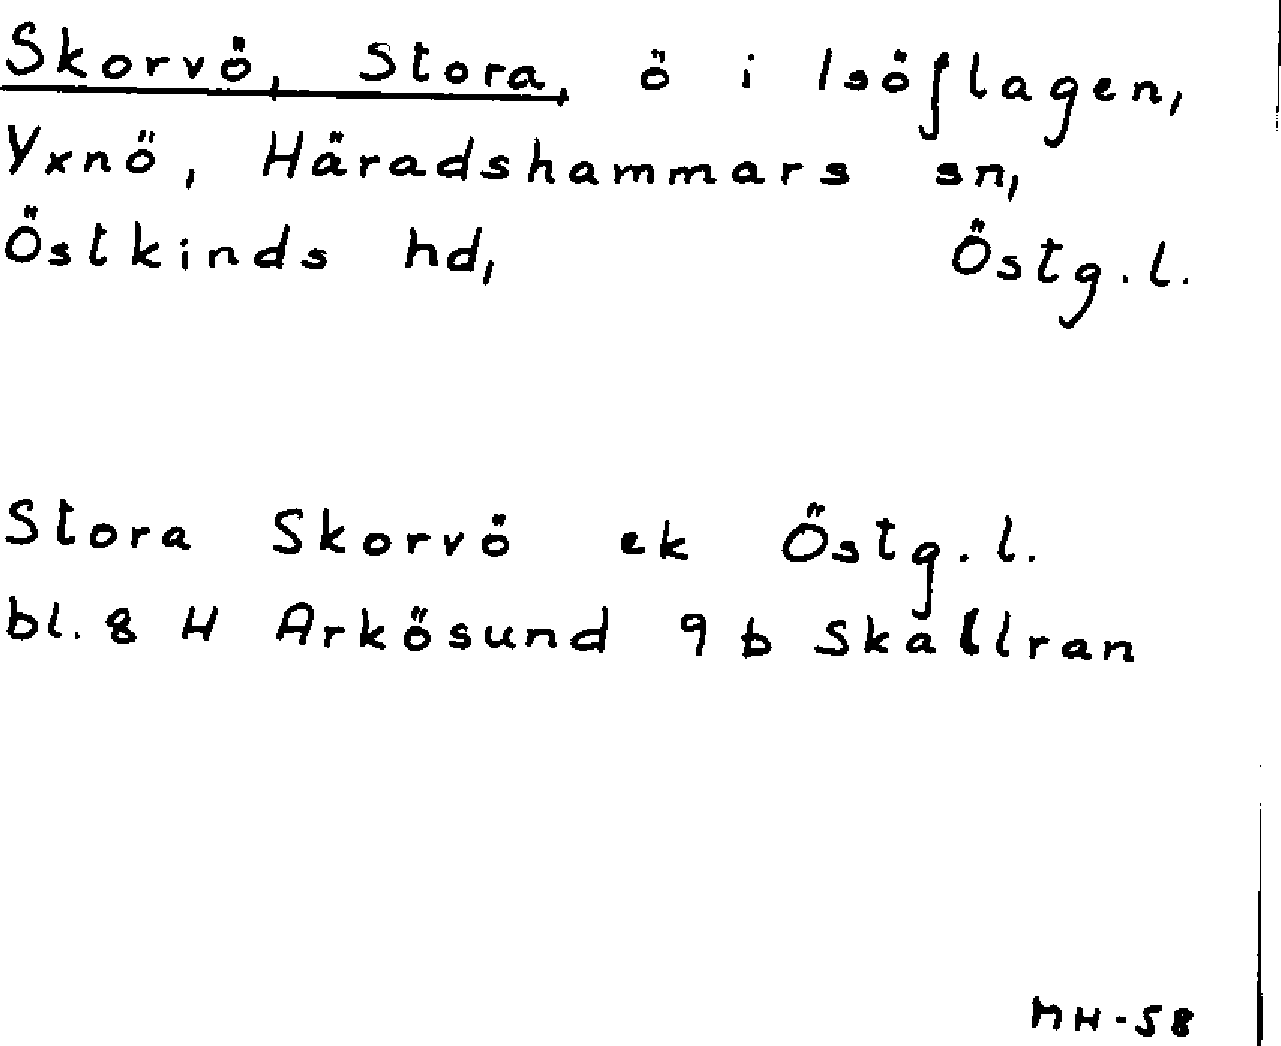 Skorvö, Stora, ö i Isöflagen,
Yxnö, Häradshammars sn,
Östkinds hd, Östg.l.
Stora Skorvö ek Östg.l.
bl. 8 H Arkösund 9 b Skallran
MH-58